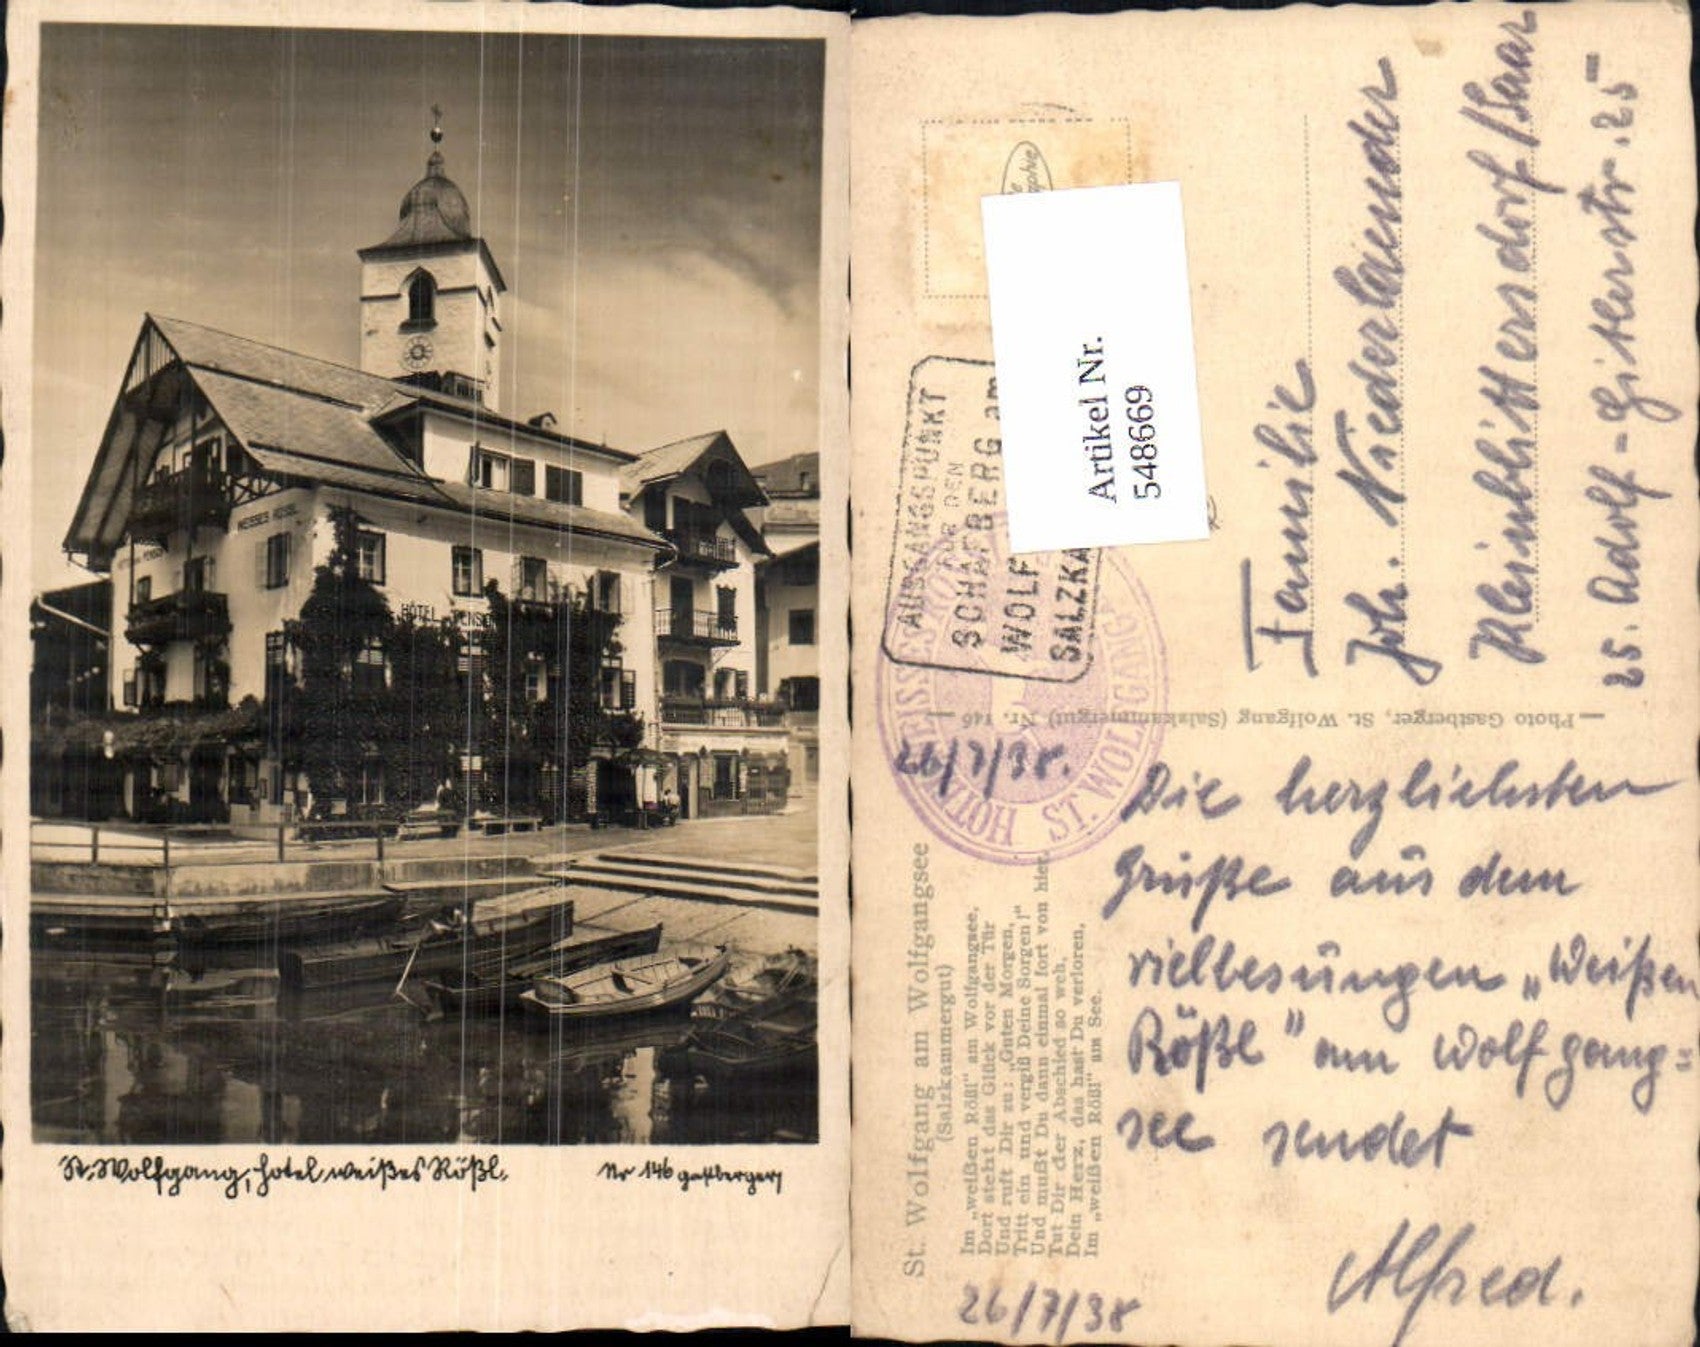 WEISSES RÖSSL
HÔTEL PENSION
St. Wolfgang, Hotel weißes Rößl.
Nr 146 Gastberger
Artikel Nr.
548669
AUSGANGSPUNKT
FÜR DEN
SCHAFBERG am
WOLF
SALZKA
HOTEL WEISSES RÖSSL
ST. WOLFGANG
26/7/38.
Familie
Joh. Niederlaender
Kleinblittersdorf/Saar
25. Adolf-Hitlerstr. 25
Photo Gastberger, St. Wolfgang (Salzkammergut) Nr. 146
St. Wolfgang am Wolfgangsee
(Salzkammergut)
Im „weißen Rößl" am Wolfgangsee,
Dort steht das Glück vor der Tür
Und ruft Dir zu: „Guten Morgen,
Tritt ein und vergiß Deine Sorgen!"
Und mußt Du dann einmal fort von hier,
Tut Dir der Abschied so weh,
Dein Herz, das hast Du verloren,
Im „weißen Rößl" am See.
26/7/38
Die herzlichsten
Grüße aus dem
vielbesungen „Weißen
Rößl" am Wolfgang=
see sendet
Alfred.